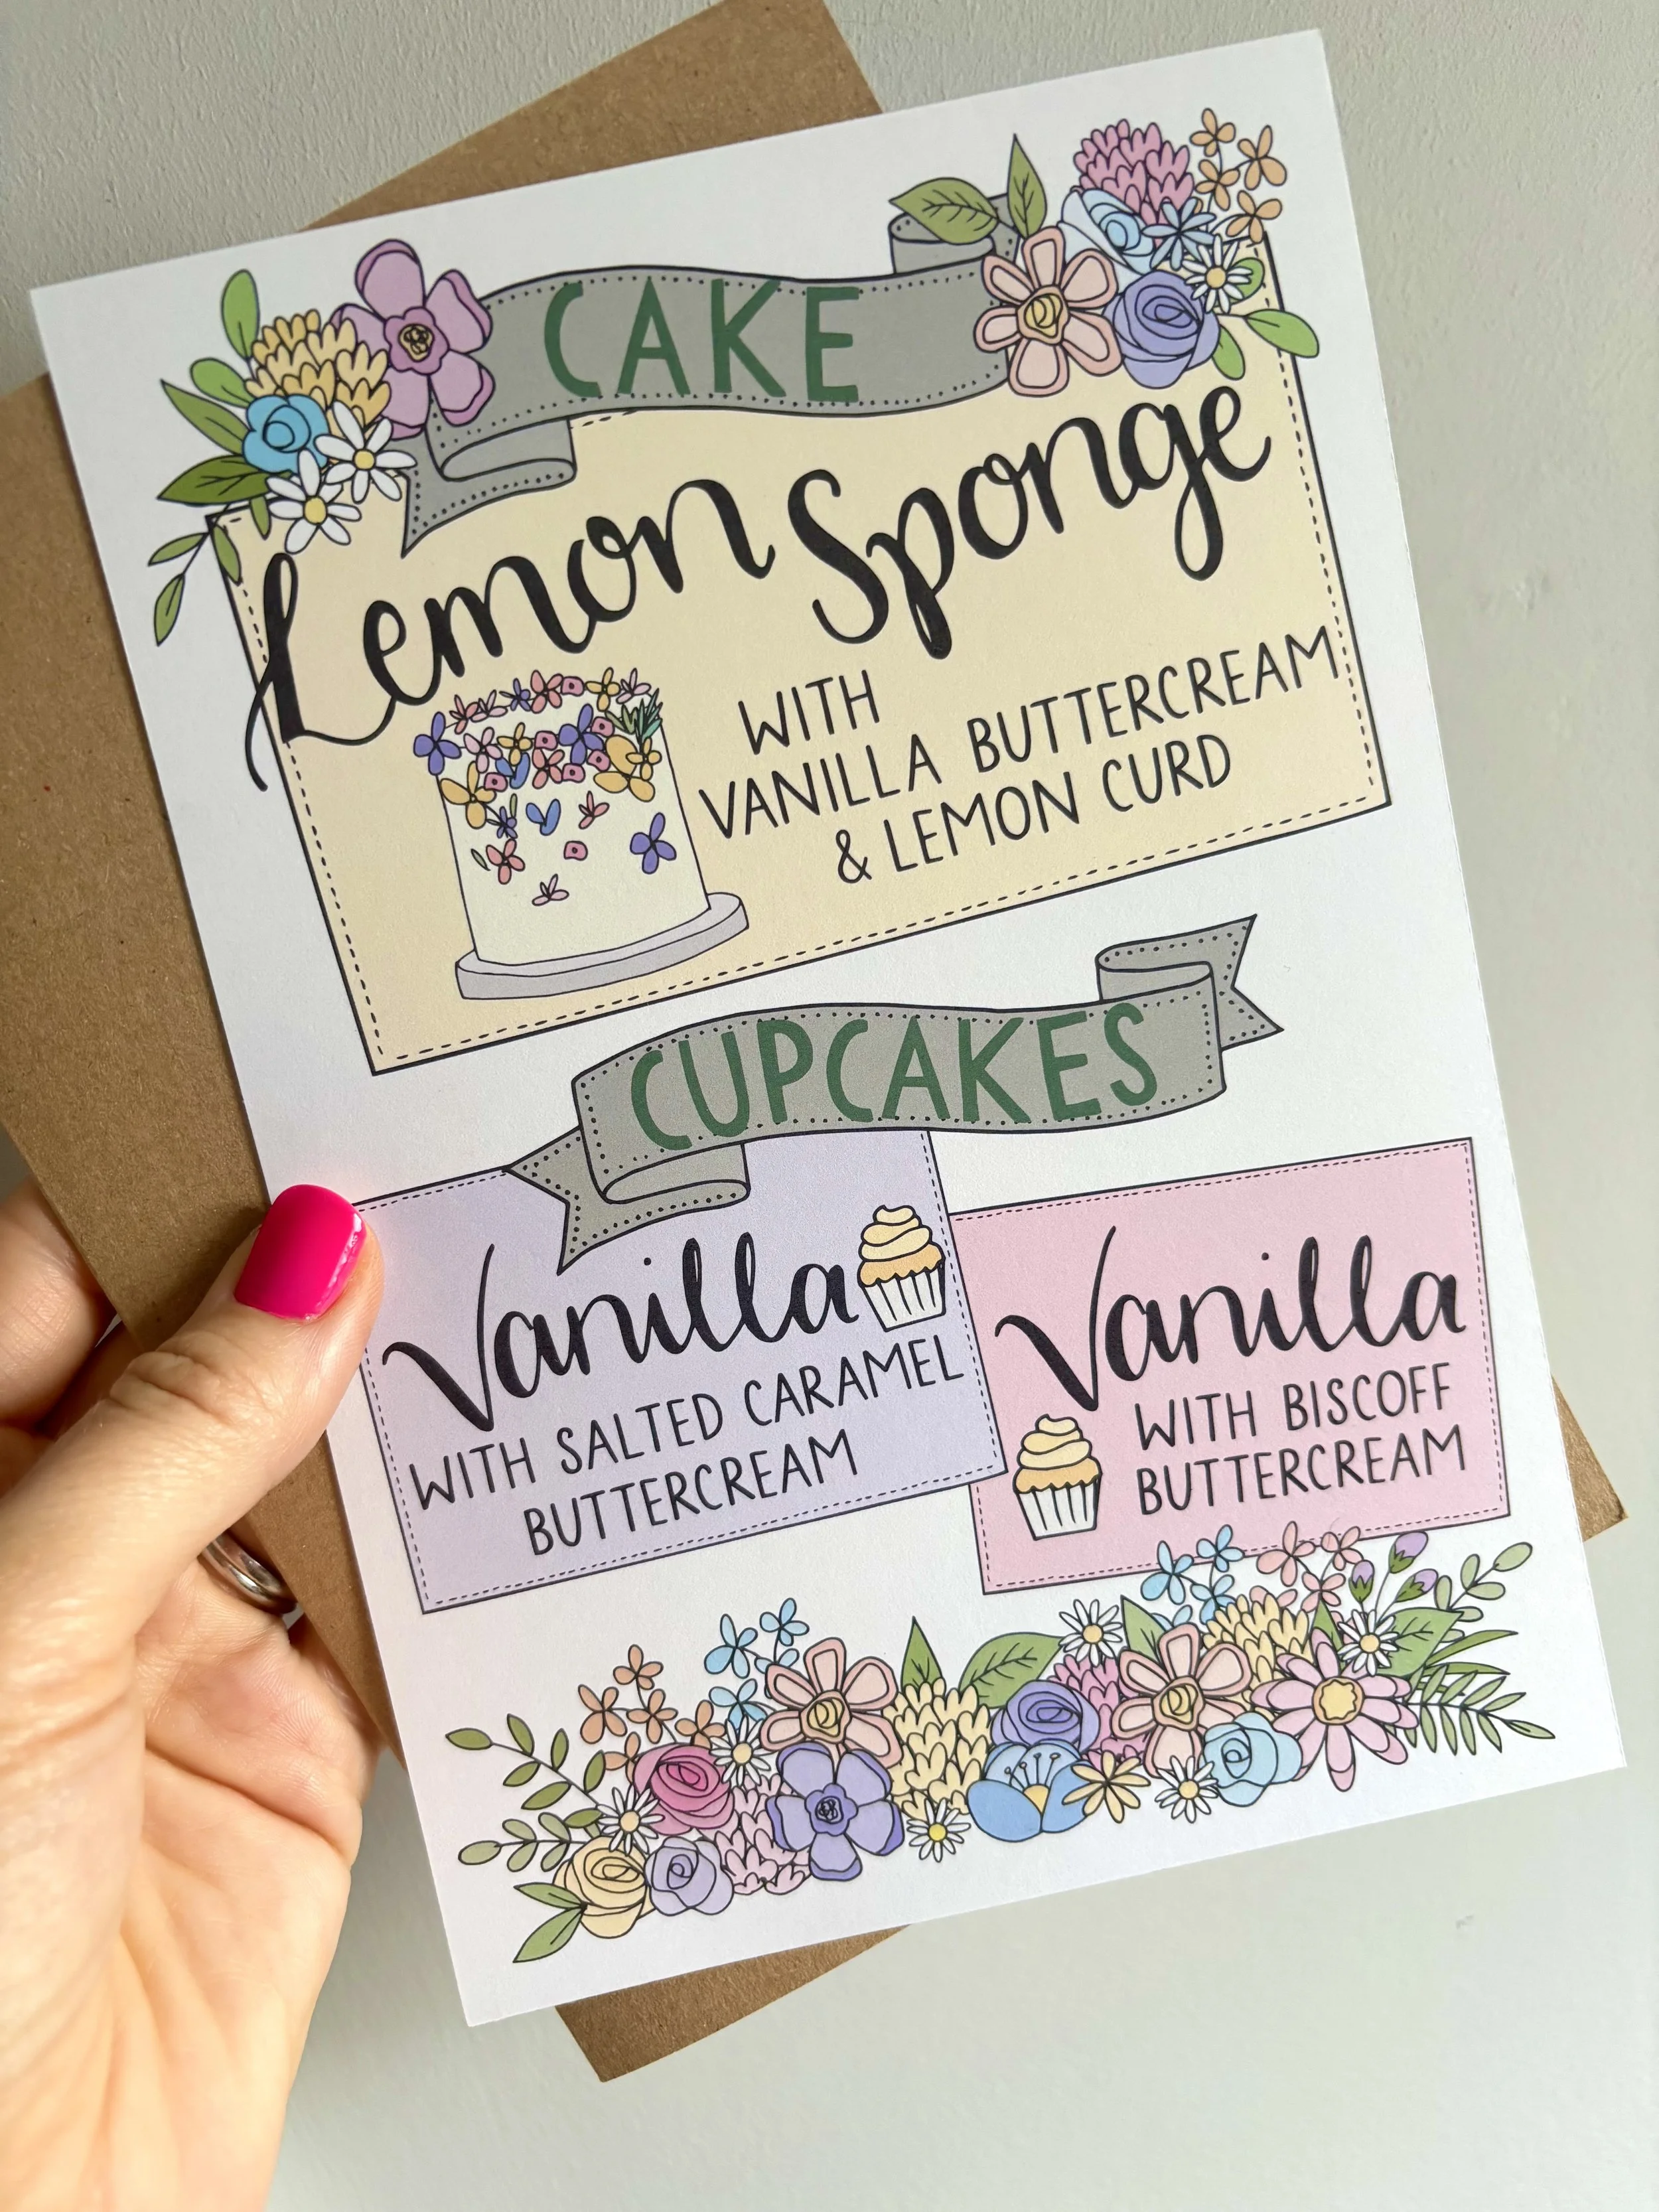 CAKE
Lemon Sponge
WITH
VANILLA BUTTERCREAM
& LEMON CURD
CUPCAKES
Vanilla
WITH SALTED CARAMEL
BUTTERCREAM
Vanilla
WITH BISCOFF
BUTTERCREAM